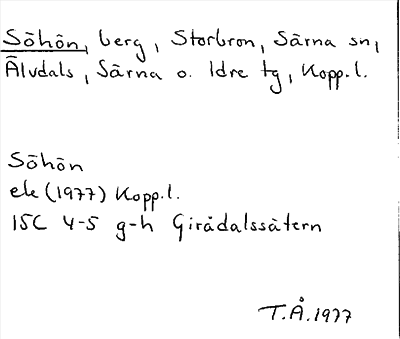 Söhön, berg, Storbron, Särna sn,
Älvdals, Särna o. Idre tg, Kopp. l.
Söhön
ek (1977) Kopp. l.
15C 4-5 g-h Girådalssätern
T.Å. 1977